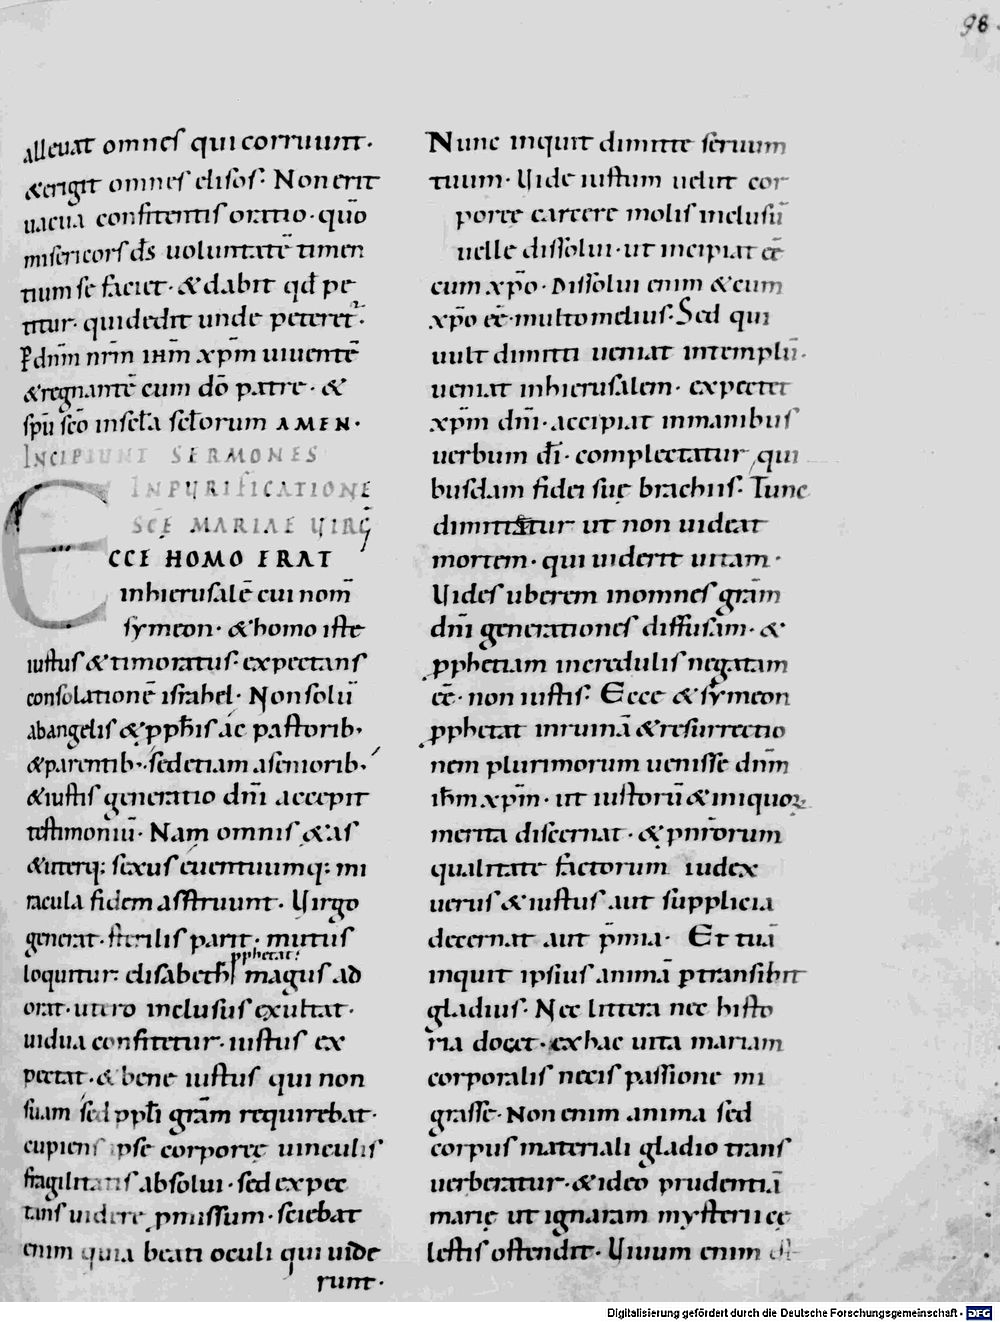 98
alleuat omnes qui corruunt.
&erigit omnes elisos. Non erit
uacua confitentis oratio. quō
misericors d̄s uoluntatē timen
tium se faciet. & dabit qđ pe
titur. qui dedit unde peteret᷑.
P dnm̄ nrm̄ ihm̄ xp̄m uiuentē
&regnantē cum dō patre. &
sp̄u sc̄o in scl̄a scl̄orum AMEN.
INCIPIUNT SERMONES
IN PURIFICATIONE
SCĒ MARIAE UIRḠ
ECCE HOMO ERAT
inhierusalē cui nom̄
symeon. & homo iste
iustus & timoratus. expectans
consolationē israhel. Non solū
abangelis & ꝓph̄is ac pastorib;
& parentib;. sedetiam aseniorib;
& iustis generatio dn̄i accepit
testimoniū. Nam omnis &as
& uterq; sexus euentuumq; mi
racula fidem asstruunt. Uirgo
generat. sterilis parit. mutus
loquitur. elisabeth ꝓphetat. magus ad
orat. utero inclusus exultat.
uidua confitetur. iustus ex
pectat. & bene iustus qui non
suam sed ppl̄i grām requirebat.
cupiens ipse corporeę uinculis
fragilitatis absolui. sed expec
tans uidere ꝓmissum. sciebat
enim quia beati oculi qui uide
runt.
Nunc inquit dimitte seruum
tuum. Uide iustum uelut cor
poreę carcere molis inclusū
uelle dissolui. ut incipiat eē
cum xp̄o. Dissolui enim & cum
xp̄o eē. multo melius. Sed qui
uult dimitti ueniat in templū.
ueniat inhierusalem. expectet
xp̄m dn̄i. accipiat inmanibus
uerbum dī. complectatur qui
busdam fidei suę brachiis. Tunc
dimittetur ut non uideat
mortem. qui uiderit uitam.
Uides uberem inomnes grām
dn̄i generationes diffusam. &
ꝓphetiam incredulis negatam
eē. non iustis. Ecce & symeon
ꝓphetat inruinā & resurrectio
nem plurimorum uenisse dnm̄
ihm̄ xp̄m. ut iustorū & iniquoꝝ
merita discernat. & ꝓ nr̄orum
qualitate factorum iudex
uerus & iustus aut supplicia
decernat aut p̄mia. Et tuā
inquit ipsius animā ꝑtransibit
gladius. Nec littera nec histo
ria docet. ex hac uita mariam
corporalis necis passione mi
grasse. Non enim anima sed
corpus materiali gladio trans
uerberatur. & ideo prudentiā
marię ut ignaram mysterii cę
lestis ostendit. Uiuum enim
Digitalisierung gefördert durch die Deutsche Forschungsgemeinschaft - DFG